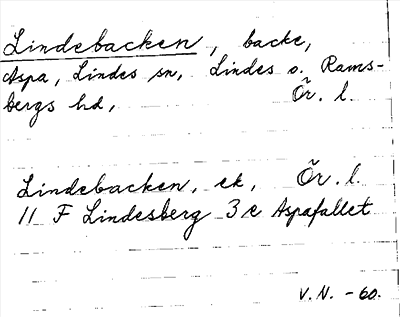 Lindebacken, backe,
Aspa, Lindes sn, Lindes o. Rams-
bergs hd, Ör. l.
Lindebacken, ek, Ör. l.
11 F Lindesberg 3e Aspafallet
V.N. -60.